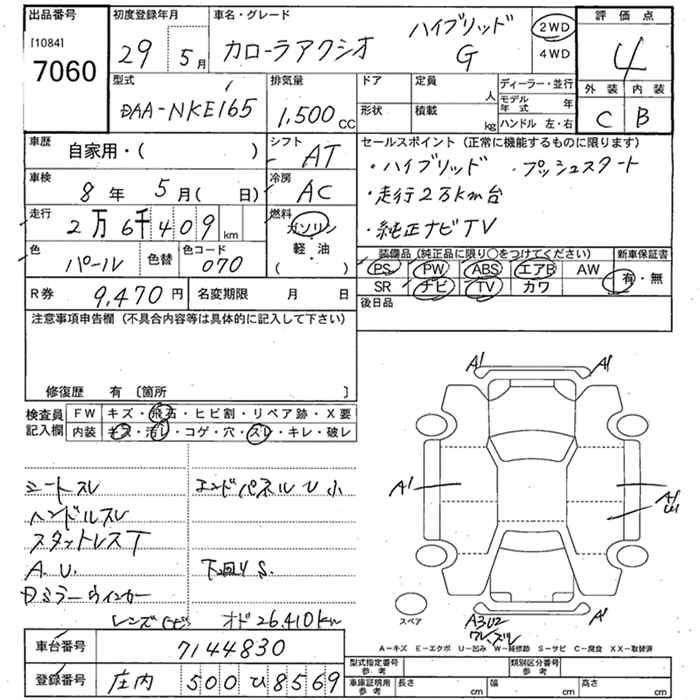 出品番号
[1084]
7060
初度登録年月
29年 5月
車名・グレード
カローラアクシオ ハイブリッド G
2WD
4WD
評価点
4
外装 内装
C B
型式
DAA-NKE165
排気量
1,500 cc
ドア
形状
定員 人
積載 kg
ディーラー・並行
モデル年式 年
ハンドル 左・右
車歴
自家用・( )
シフト
AT
車検
8年 5月( 日)
冷房
AC
走行
2万6千409 km
燃料
ガソリン
・
軽・油
( )
色
パール
色替
色コード
070
セールスポイント (正常に機能するものに限ります)
・ハイブリッド ・プッシュスタート
・走行2万km台
・純正ナビTV
装備品 (純正品に限り○をつけてください)
PS PW ABS エアB AW
SR ナビ TV カワ
新車保証書
有・無
後日品
R券 9,470円 名変期限 月 日
注意事項申告欄 (不具合内容等は具体的に記入して下さい)
修復歴 有 〔箇所 〕
検査員記入欄
FW キズ・飛石・ヒビ割・リペア跡・X要
内装 キズ・汚レ・コゲ・穴・スレ・キレ・破レ
シートスレ
ハンドルスレ
スタットレスT
A.U.
Dミラーウィンカー
レンズヒビ
エンドパネルU小
下回りS.
オド26.410km
A1
A1
A1
A1
A1
A1
A3U2
スペア
A-キズ E-エクボ U-凹み W-補修跡 S-サビ C-腐食 XX-取替済
車台番号 7144830
登録番号 庄内 500 ひ 8569
型式指定番号
参考
類別区分番号
参考
車庫証明用
参考
長さ cm 幅 cm 高さ cm